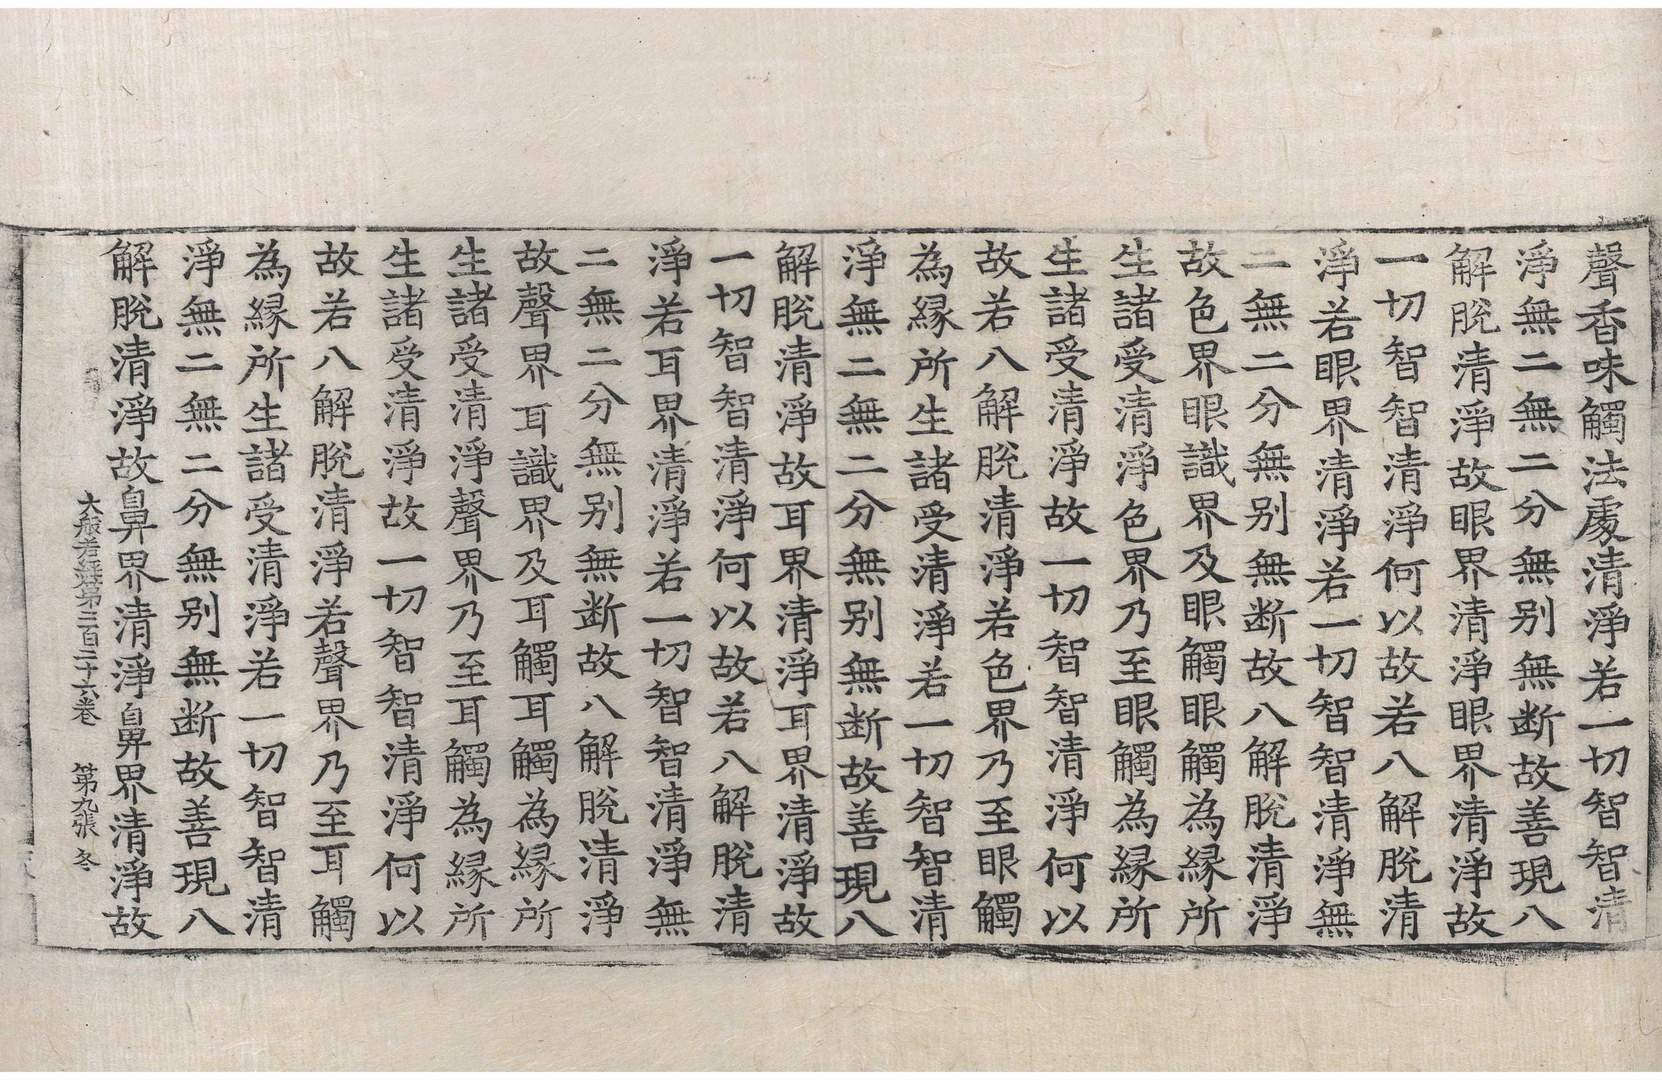 聲香味觸法處清淨若一切智智清
淨無二無二分無別無断故善現八
解脫清淨故眼界清淨眼界清淨故
一切智智清淨何以故若八解脫清
淨若眼界清淨若一切智智清淨無
二無二分無別無断故八解脫清淨
故色界眼識界及眼觸眼觸為緣所
生諸受清淨色界乃至眼觸為緣所
生諸受清淨故一切智智清淨何以
故若八解脫清淨若色界乃至眼觸
為緣所生諸受清淨若一切智智清
淨無二無二分無別無断故善現八
解脫清淨故耳界清淨耳界清淨故
一切智智清淨何以故若八解脫清
淨若耳界清淨若一切智智清淨無
二無二分無別無断故八解脫清淨
故聲界耳識界及耳觸耳觸為緣所
生諸受清淨聲界乃至耳觸為緣所
生諸受清淨故一切智智清淨何以
故若八解脫清淨若聲界乃至耳觸
為緣所生諸受清淨若一切智智清
淨無二無二分無別無断故善現八
解脫清淨故鼻界清淨鼻界清淨故
大般若經第二百二十六卷 第九張 冬